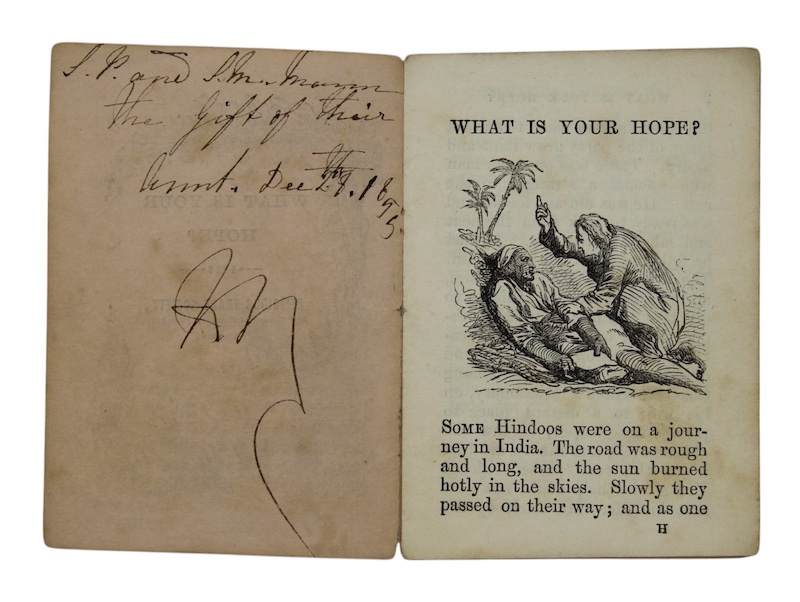 S. P. and S. M. Mann
the Gift of their
Aunt. Dec 1895
WHAT IS YOUR
HOPE?
WHAT IS YOUR HOPE?
SOME Hindoos were on a jour-
ney in India. The road was rough
and long, and the sun burned
hotly in the skies. Slowly they
passed on their way; and as one
H